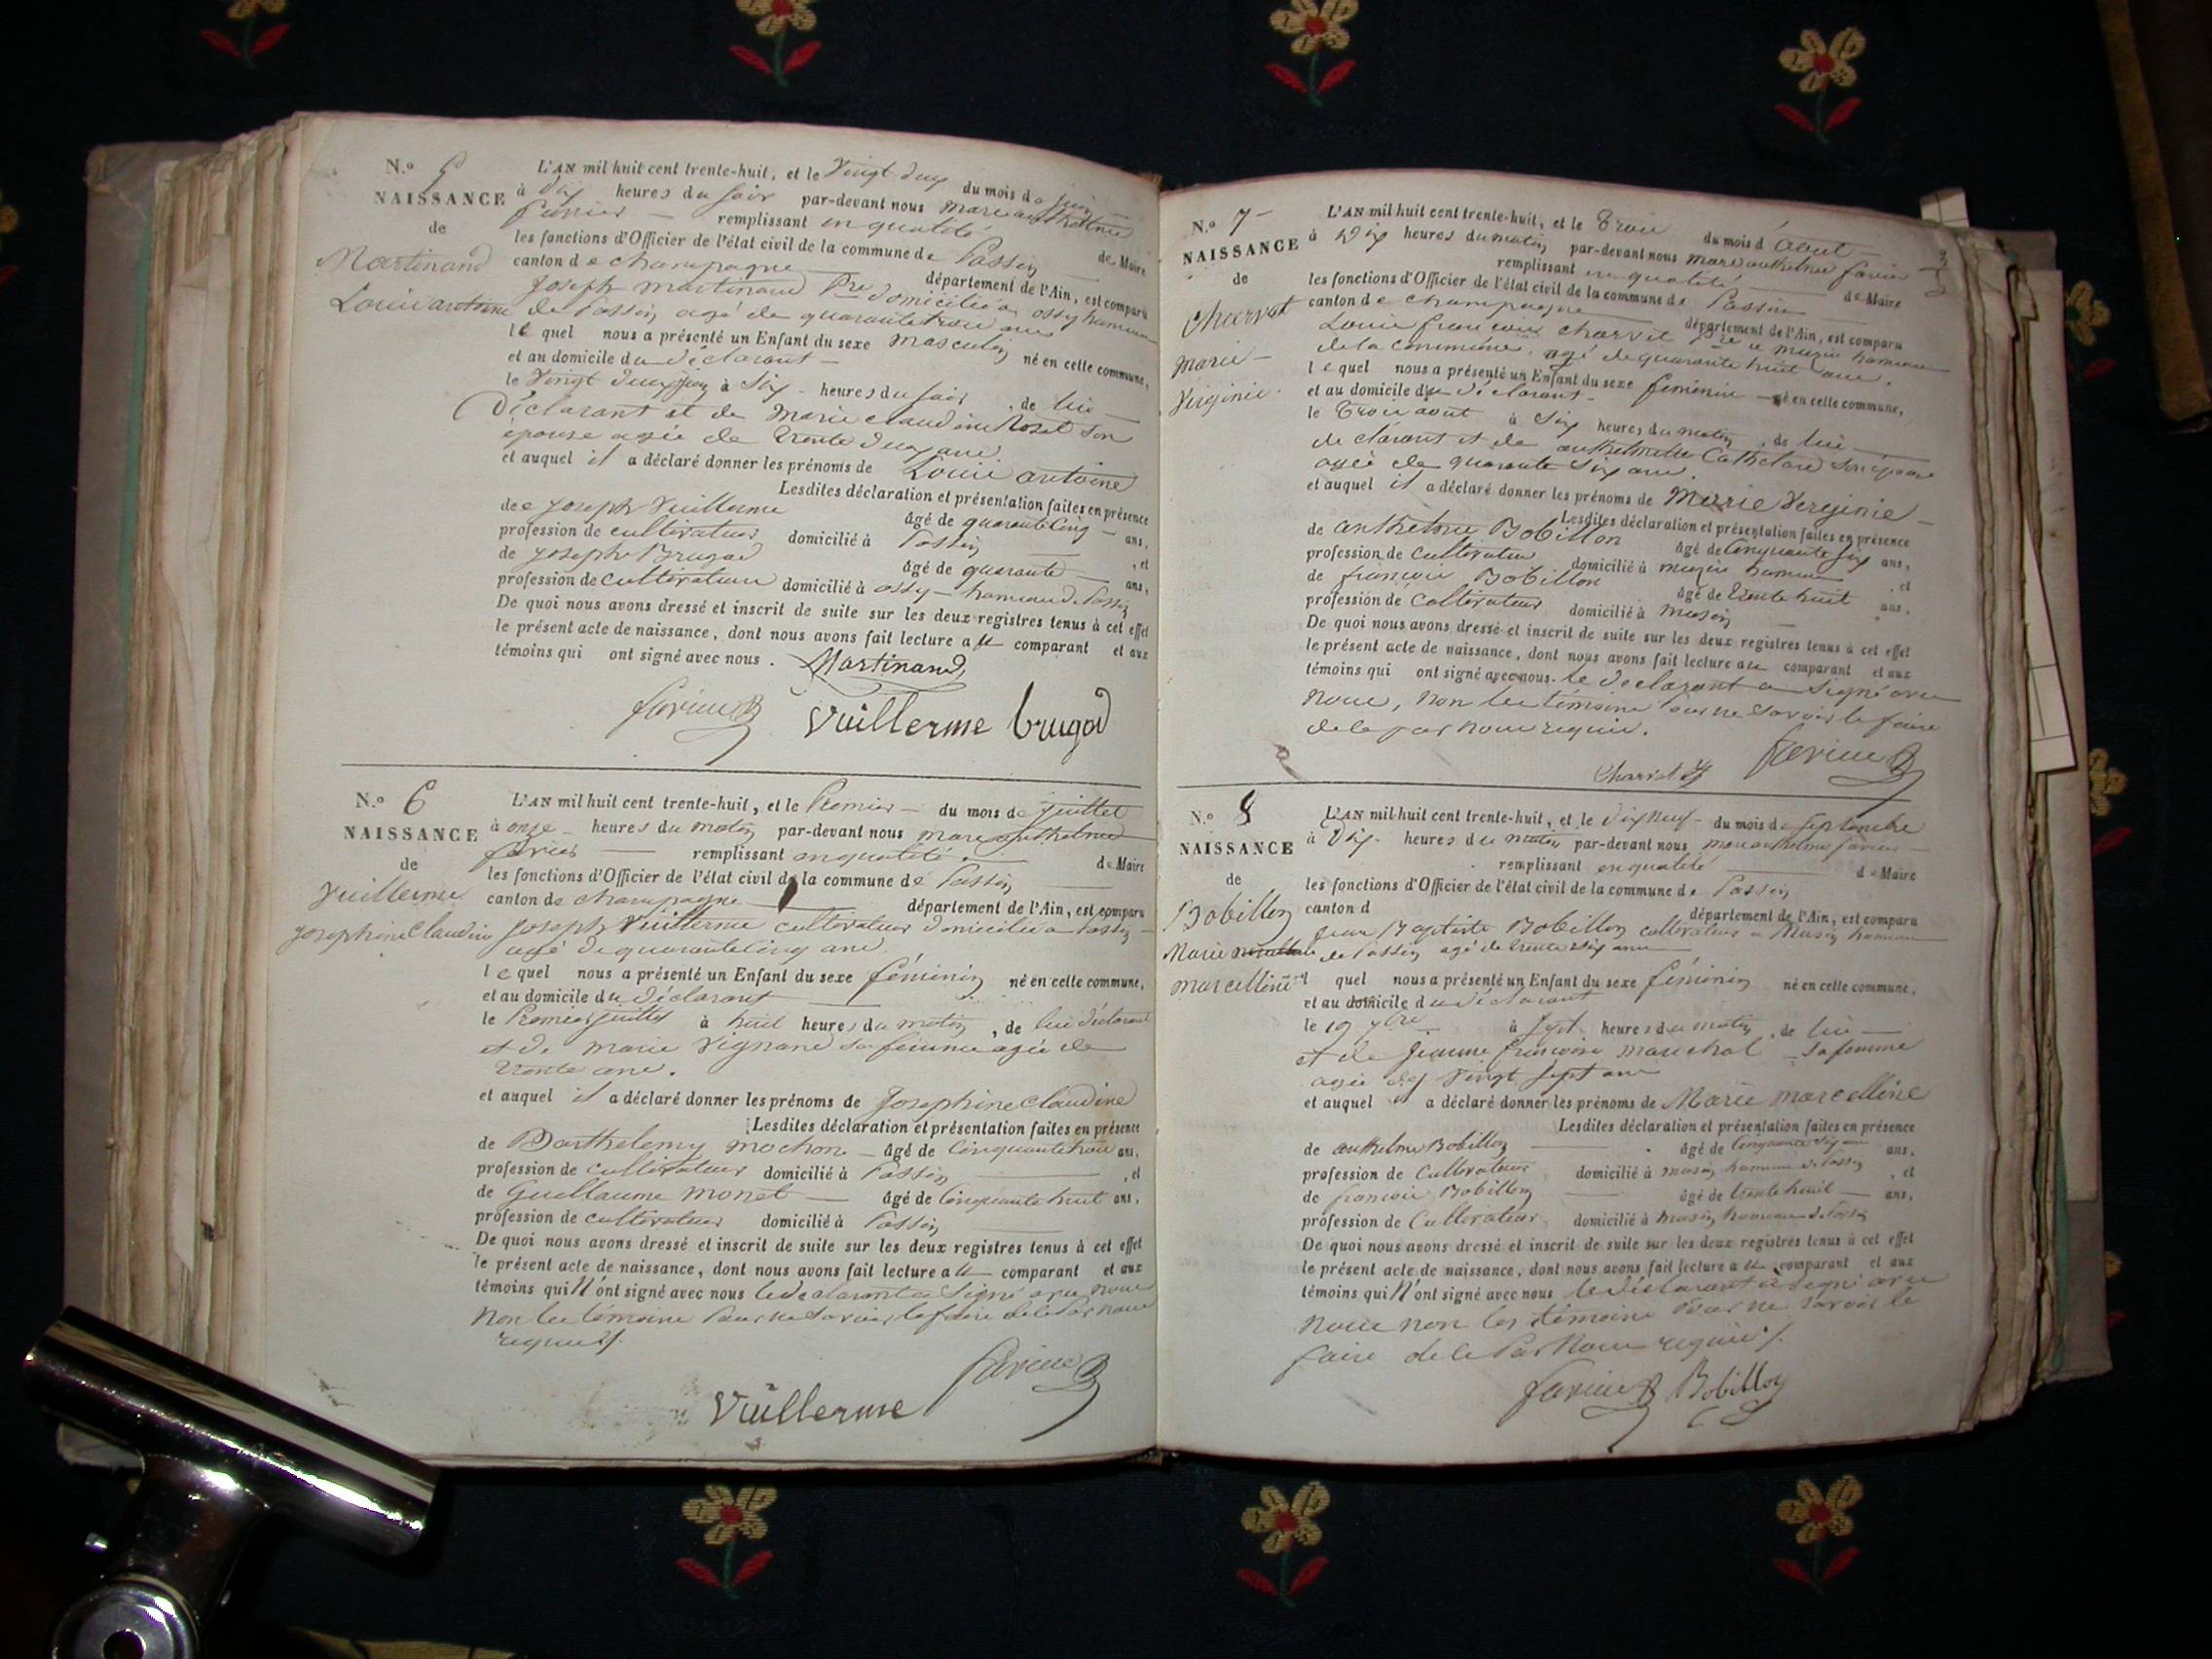 N.o 5
NAISSANCE
de
Martinand
Louis antoine
L'AN mil huit cent trente-huit, et le Vingt deux du mois de juin
à dix heures du soir par-devant nous marc anthelme
favier remplissant en qualité de Maire
les fonctions d'Officier de l'état civil de la commune de Passin
canton de champagne département de l'Ain, est comparu
Joseph martinand Pre domicilié a ossy hameau
de Passin agé de quarante trois ans
le quel nous a présenté un Enfant du sexe masculin né en cette commune,
et au domicile du déclarant
le Vingt deux juin à Six heures du soir, de lui
Déclarant et de marie claudine Roset son
épouse agée de trente deux ans
et auquel il a déclaré donner les prénoms de Louis antoine
Lesdites déclaration et présentation faites en présence
de Joseph Vuillerme âgé de quarante cinq ans,
profession de cultivateur domicilié à Passin, et
de joseph Brugod âgé de quarante ans,
profession de cultivateur domicilié à ossy hameau de Passin
De quoi nous avons dressé et inscrit de suite sur les deux registres tenus à cet effet
le présent acte de naissance, dont nous avons fait lecture au comparant et aux
témoins qui ont signé avec nous. Martinand
Vuillerme brugod
N.o 6
NAISSANCE
de
Vuillerme
josephine Claudine
L'AN mil huit cent trente-huit, et le Premier du mois de juillet
à onze heures du matin par-devant nous marc anthelme
favier remplissant en qualité de Maire
les fonctions d'Officier de l'état civil de la commune de Passin
canton de champagne département de l'Ain, est comparu
Joseph Vuillerme cultivateur domicilié a Passin
agé de quarante cinq ans
le quel nous a présenté un Enfant du sexe féminin né en cette commune,
et au domicile du déclarant
le Premier juillet à huit heures du matin, de lui déclarant
et de marie Vignand sa femme agée de
trente ans.
et auquel il a déclaré donner les prénoms de Josephine Claudine
Lesdites déclaration et présentation faites en présence
de Barthelemy mochon âgé de Cinquante trois ans,
profession de cultivateur domicilié à Passin, et
de Guellaume monet âgé de Cinquante huit ans,
profession de cultivateur domicilié à Passin
De quoi nous avons dressé et inscrit de suite sur les deux registres tenus à cet effet
le présent acte de naissance, dont nous avons fait lecture au comparant et aux
témoins qui N'ont signé avec nous le declarant a Signé avec nous
Non les témoins Pour ne Savoir le faire de le Par nous
requis
Vuillerme
N.o 7
NAISSANCE
de
Charvet
marie
Virginie
L'AN mil huit cent trente-huit, et le Trois du mois d'Aout
à Dix heures du matin par-devant nous marc anthelme favier
remplissant en qualité de Maire
les fonctions d'Officier de l'état civil de la commune de Passin
canton de champagne département de l'Ain, est comparu
Louis françois charvet Pre a muzin hameau
de la commune, agé de quarante huit ans.
le quel nous a présenté un Enfant du sexe féminin né en cette commune,
et au domicile du déclarant
le Trois aout à Six heures du matin, de lui
declarant et de anthelmette Cathelard son épouse
agée de quarante Six ans
et auquel il a déclaré donner les prénoms de Marie Verginie
Lesdites déclaration et présentation faites en présence
de anthelme Bobillon âgé de Cinquante six ans,
profession de Cultivateur domicilié à muzin hameau, et
de françois Bobillon âgé de trente huit ans,
profession de Coltivateur domicilié à musin
De quoi nous avons dressé et inscrit de suite sur les deux registres tenus à cet effet
le présent acte de naissance, dont nous avons fait lecture au comparant et aux
témoins qui ont signé avec nous. le declarant a Signé avec
nous, non les témoins pour ne Savoir le faire
de le par nous requis.
N.o 8
NAISSANCE
de
Bobillon
Marie
marcelline
L'AN mil huit cent trente-huit, et le dix neuf du mois de septembre
à Dix heures du matin par-devant nous marc anthelme favier
remplissant en qualité de Maire
les fonctions d'Officier de l'état civil de la commune de Passin
canton d département de l'Ain, est comparu
Jean Baptiste Bobillon cultivateur a Musin hameau
de Passin agé de trente six ans
l quel nous a présenté un Enfant du sexe féminin né en cette commune,
et au domicile du déclarant
le 19 7bre à Sept heures du matin, de lui
et de Jeanne françoise marechal sa femme
agée de Vingt Sept ans
et auquel il a déclaré donner les prénoms de Marie marcelline
Lesdites déclaration et présentation faites en présence
de anthelme Bobillon âgé de Cinquante six ans ans,
profession de Cultivateur domicilié à musin hameau de Passin, et
de françois Bobillon âgé de trente huit ans,
profession de Cultivateur domicilié à musin hameau de Passin
De quoi nous avons dressé et inscrit de suite sur les deux registres tenus à cet effet
le présent acte de naissance, dont nous avons fait lecture au comparant et aux
témoins qui N'ont signé avec nous le déclarant a signé avec
nous non les témoins Pour ne Savoir le
faire de le Par Nous requis
Bobillon